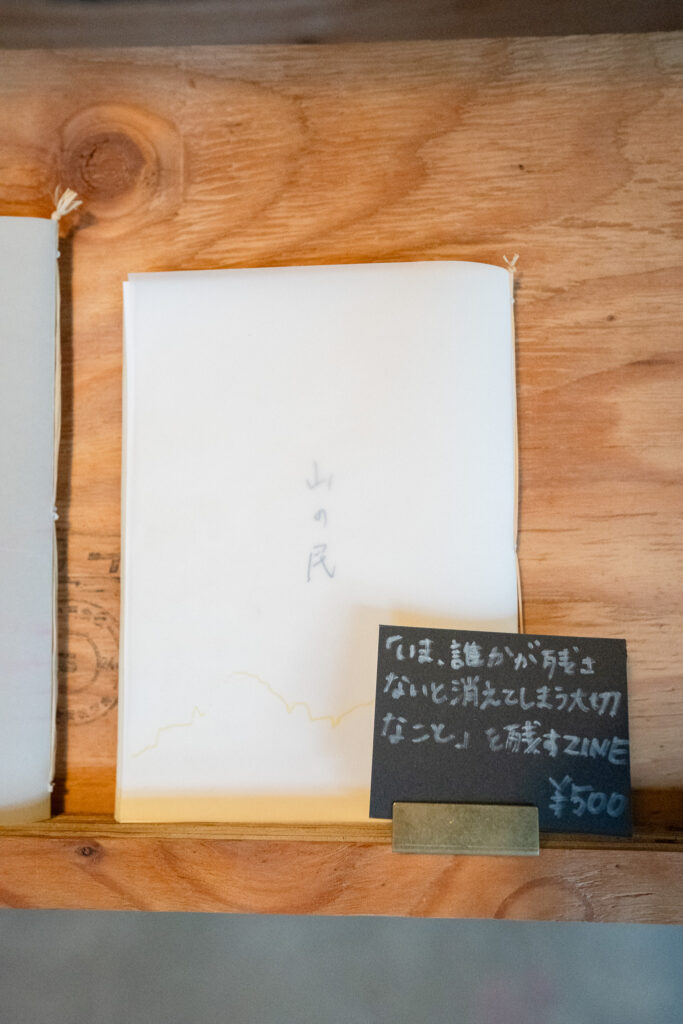 山の民
「いま、誰かが残さ
ないと消えてしまう大切
なこと」を残すZINE
¥500